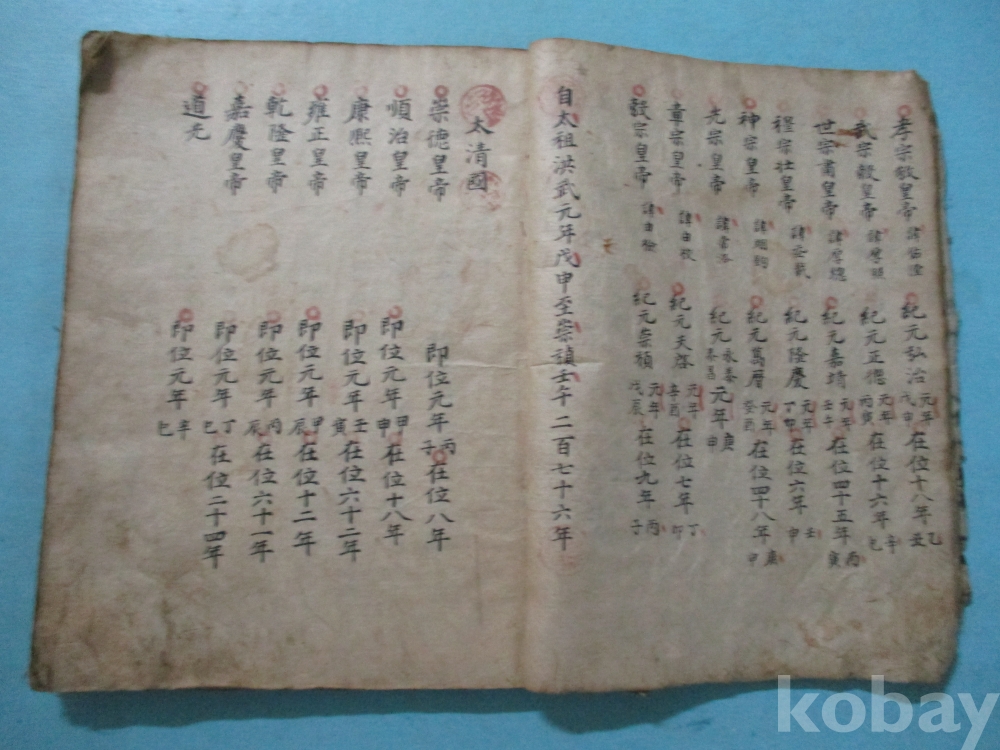 孝宗敬皇帝 諱祐溏 紀元弘治 元年戊申 在位十八年 乙丑
武宗毅皇帝 諱厚照 紀元正德 元年丙寅 在位十六年 辛巳
世宗肅皇帝 諱厚熜 紀元嘉靖 元年壬午 在位四十五年 丙寅
穆宗壮皇帝 諱載 紀元隆慶 元年丁卯 在位六年 壬申
神宗皇帝 諱翊鈞 紀元萬曆 元年癸酉 在位四十八年 庚申
光宗皇帝 諱常洛 紀元泰昌 元年庚申
熹宗皇帝 諱由校 紀元天啓 元年辛酉 在位七年 丁卯
毅宗皇帝 諱由檢 紀元崇禎 元年戊辰 在位九年 丙子
自太祖洪武元年戊申至崇禎壬午二百七十六年
太清國
崇德皇帝 即位元年丙子 在位八年
順治皇帝 即位元年甲申 在位十八年
康熙皇帝 即位元年壬寅 在位六十二年
雍正皇帝 即位元年甲辰 在位十二年
乾隆皇帝 即位元年丙辰 在位六十一年
嘉慶皇帝 即位元年丁巳 在位二十四年
道光 即位元年辛巳
kobay